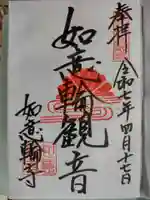 奉拝
令和七年四月十七日
如意輪観音
如意輪寺